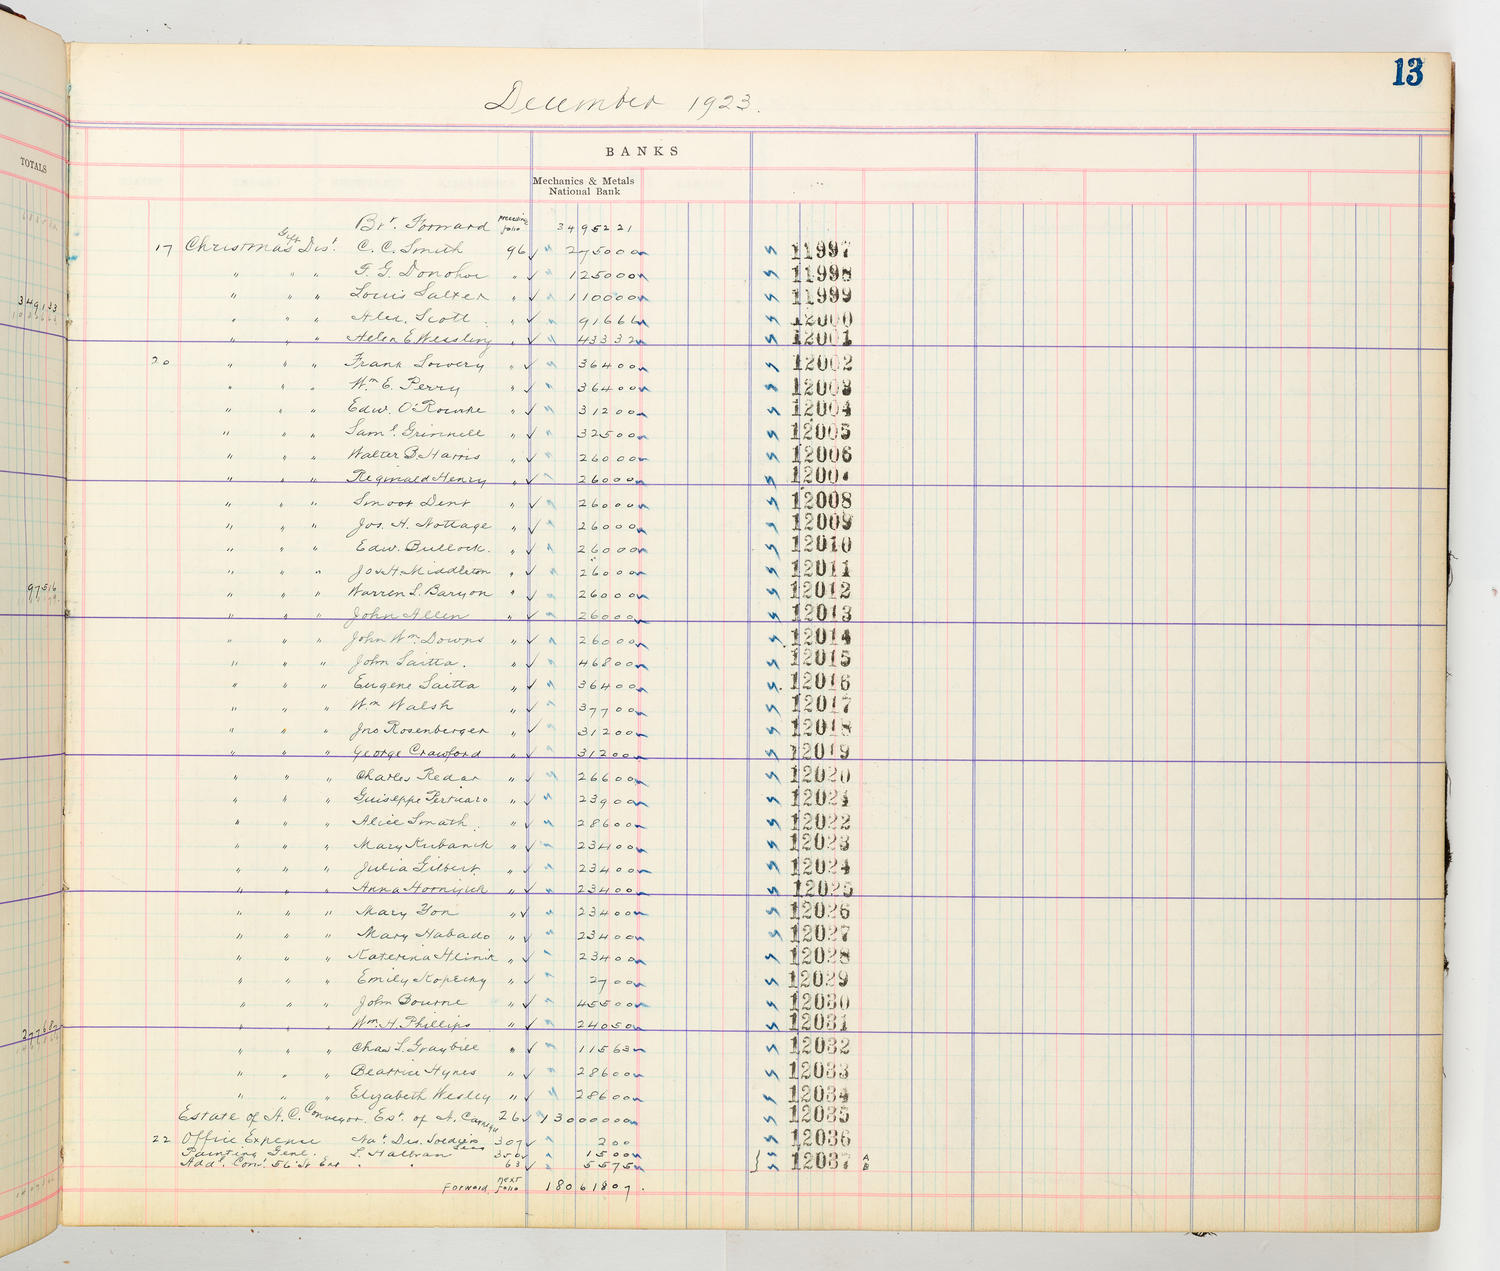 13
December 1923.
TOTALS
BANKS
Mechanics & Metals
National Bank
Brt. Forward preceding folio 34952 21
17 Christmas Gift Dist. C. C. Smith 96 ✓ 2750 00 11997
" " " F. G. Donohoe " ✓ 1250 00 11998
" " " Louis Salter " ✓ 1100 00 11999
" " " Alex. Scott " ✓ 916 66 12000
" " " Helen E. Wessling " ✓ 433 32 12001
20 " " " Frank Lowery " ✓ 364 00 12002
" " " Wm E. Perry " ✓ 364 00 12003
" " " Edw. O'Rourke " ✓ 312 00 12004
" " " Saml. Grinnell " ✓ 325 00 12005
" " " Walter B Harris " ✓ 260 00 12006
" " " Reginald Henry " ✓ 260 00 1200
" " " Smoot Dent " ✓ 260 00 12008
" " " Jos. H. Nottage " ✓ 260 00 12009
" " " Edw. Bullock. " ✓ 260 00 12010
" " " Jos H Middleton " ✓ 260 00 12011
" " " Warren L. " ✓ 260 00 12012
" " " John Allen " ✓ 260 00 12013
" " " John Wm. Downs " ✓ 260 00 12014
" " " John Saitta. " ✓ 468 00 12015
" " " Eugene Saitta " ✓ 364 00 12016
" " " Wm Walsh " ✓ 377 00 12017
" " " Jno Rosenberger " ✓ 312 00 12018
" " " George Crawford " ✓ 312 00 12019
" " " Charles Redar " ✓ 266 00 12020
" " " Guiseppe " ✓ 239 00 12021
" " " Alice Smath " ✓ 286 00 12022
" " " Mary Kubanik " ✓ 234 00 12023
" " " Julia Gilbert " ✓ 234 00 12024
" " " Anna " ✓ 234 00 12025
" " " Mary Yon " ✓ 234 00 12026
" " " Mary Habado " ✓ 234 00 12027
" " " Katerina Hlinik " ✓ 234 00 12028
" " " Emily Kopecky " ✓ 27 00 12029
" " " John Bourne " ✓ 455 00 12030
" " " Wm. H. Phillips " ✓ 240 50 12031
" " " Chas L. Graybill " ✓ 115 63 12032
" " " Beatrice Hynes " ✓ 286 00 12033
" " " Elizabeth Wesley " ✓ 286 00 12034
Estate of A. C. Conveyor. Est. of A. Carnegie 26 ✓ 130000 00 12035
22 Office Expense Nat. Dis. Soldiers 307 ✓ 2 00 12036
Painting Genl. L. Halbran 356 ✓ 15 00 12037 A
Addl. Cons. 56" " " 63 ✓ 55 75 B
Forward next folio 180618 07